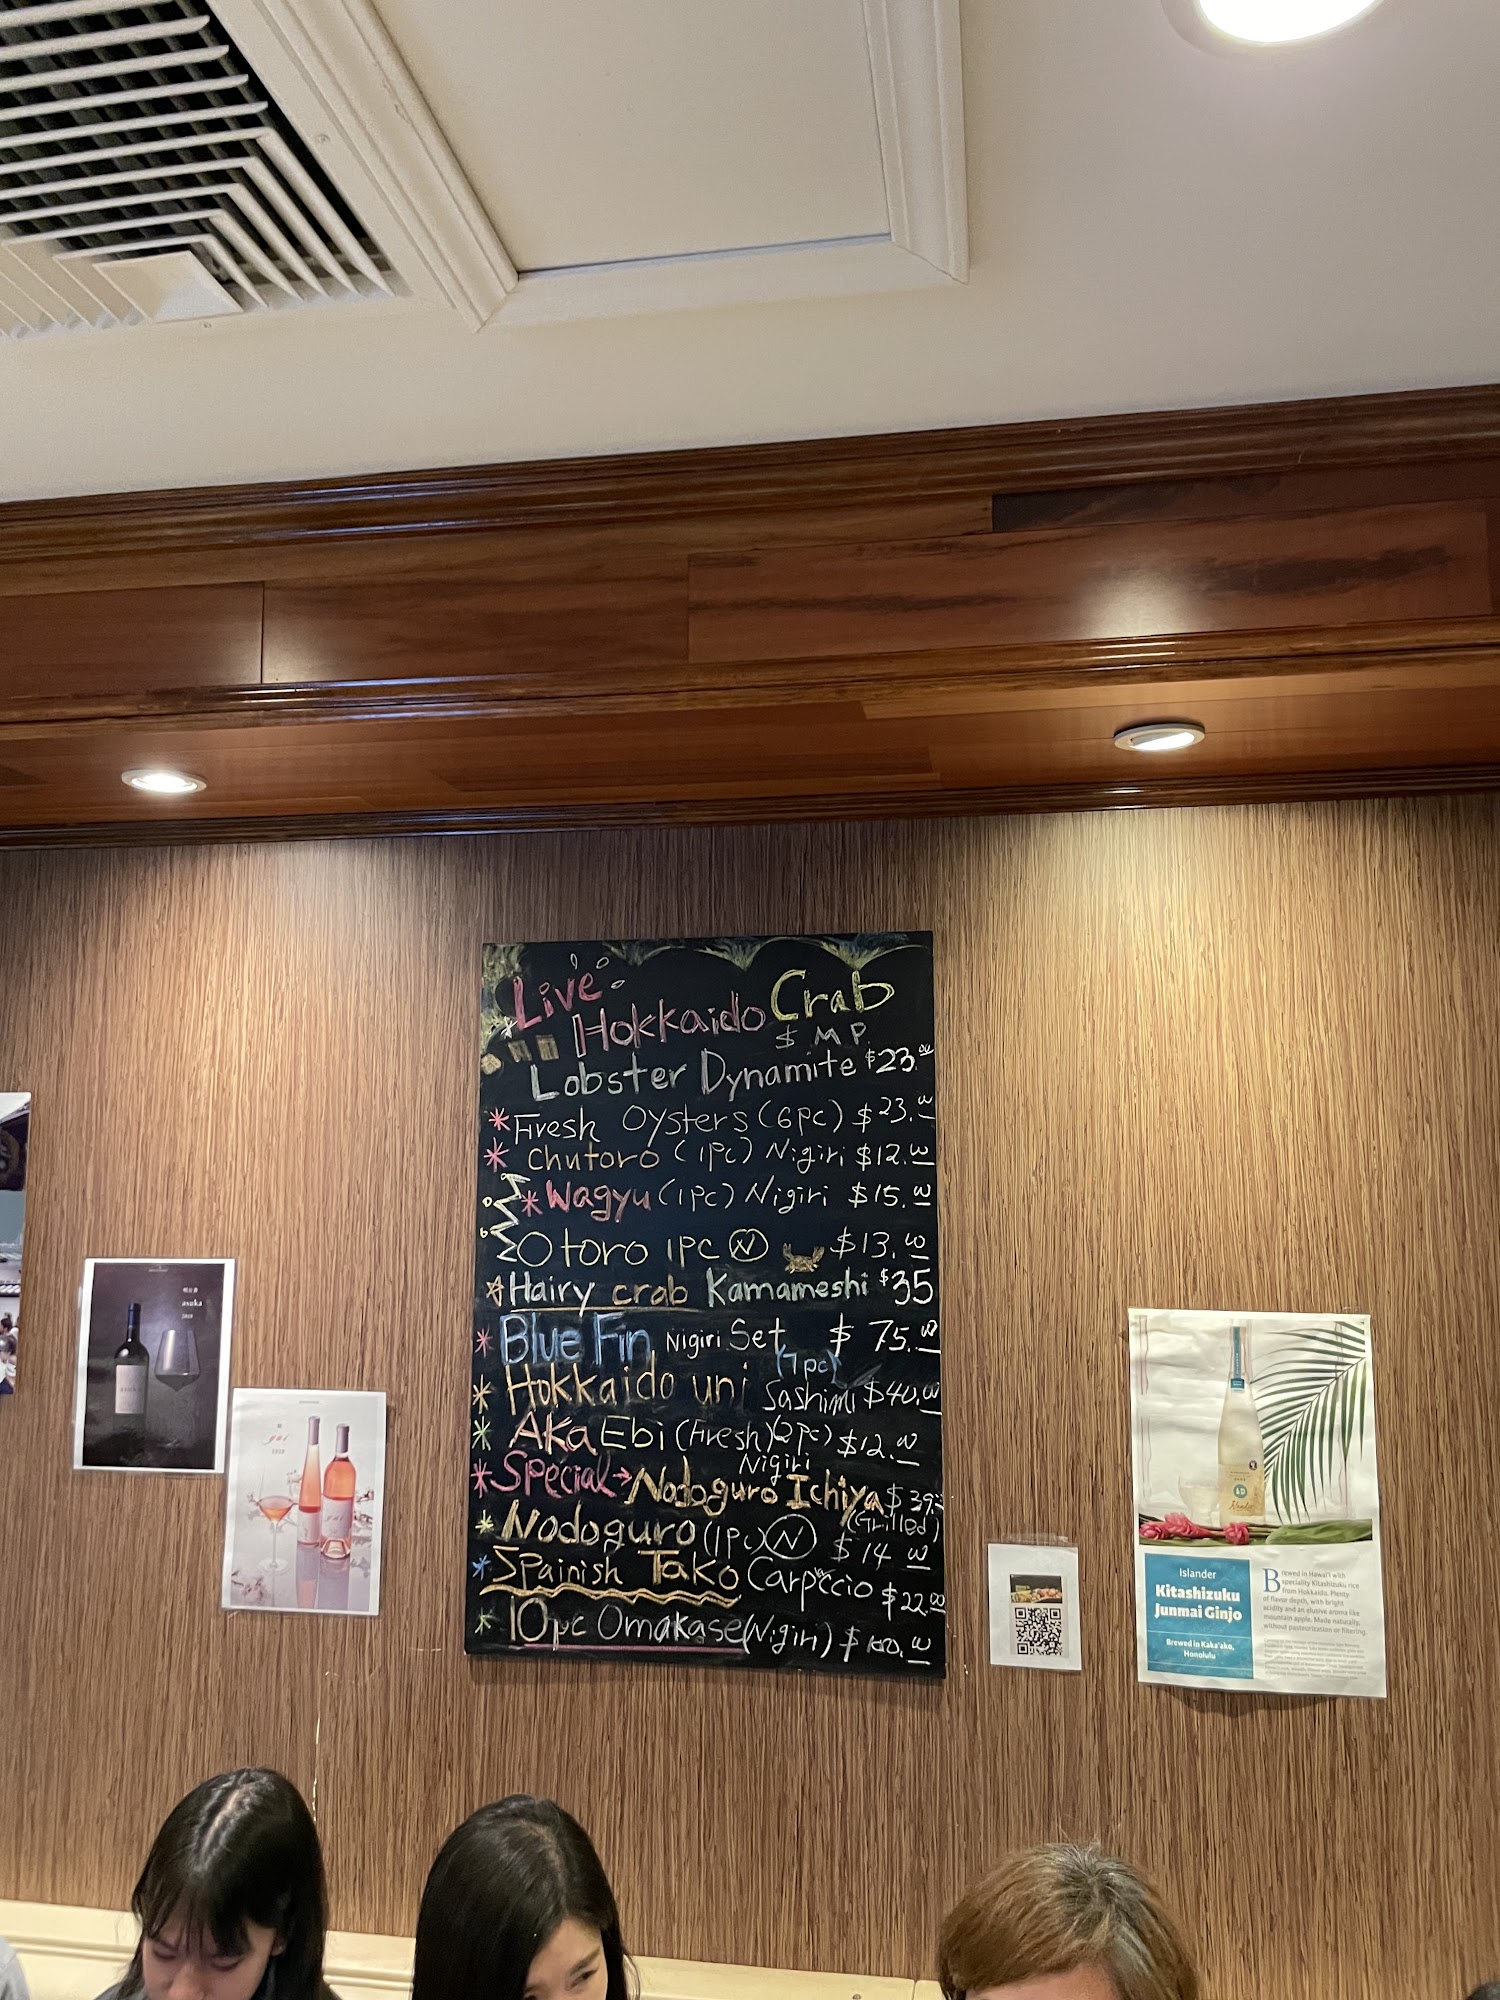 Live
Hokkaido Crab
$ M P.
Lobster Dynamite $23.00
* Fresh Oysters (6pc) $23.00
* Chutoro (1pc) Nigiri $12.00
* Wagyu (1pc) Nigiri $15.00
Otoro 1PC N $13.00
Hairy crab Kamameshi $35
* Blue Fin Nigiri Set $ 75.00
(7pc)
* Hokkaido uni Sashimi $40.00
* Aka Ebi (Fresh) (2pc) $12.00
Nigiri
* Special → Nodoguro Ichiya $39.00
(Grilled)
* Nodoguro (1pc) N $14.00
* Spainish Tako Carpaccio $22.00
* 10pc Omakase (Nigiri) $100.00
asuka
Islander
Kitashizuku
Junmai Ginjo
Brewed in Kaka'ako,
Honolulu
Brewed in Hawai'i with
speciality Kitashizuku rice
from Hokkaido. Plenty
of flavor depth, with bright
acidity and an elusive aroma like
mountain apple. Made naturally,
without pasteurization or filtering.